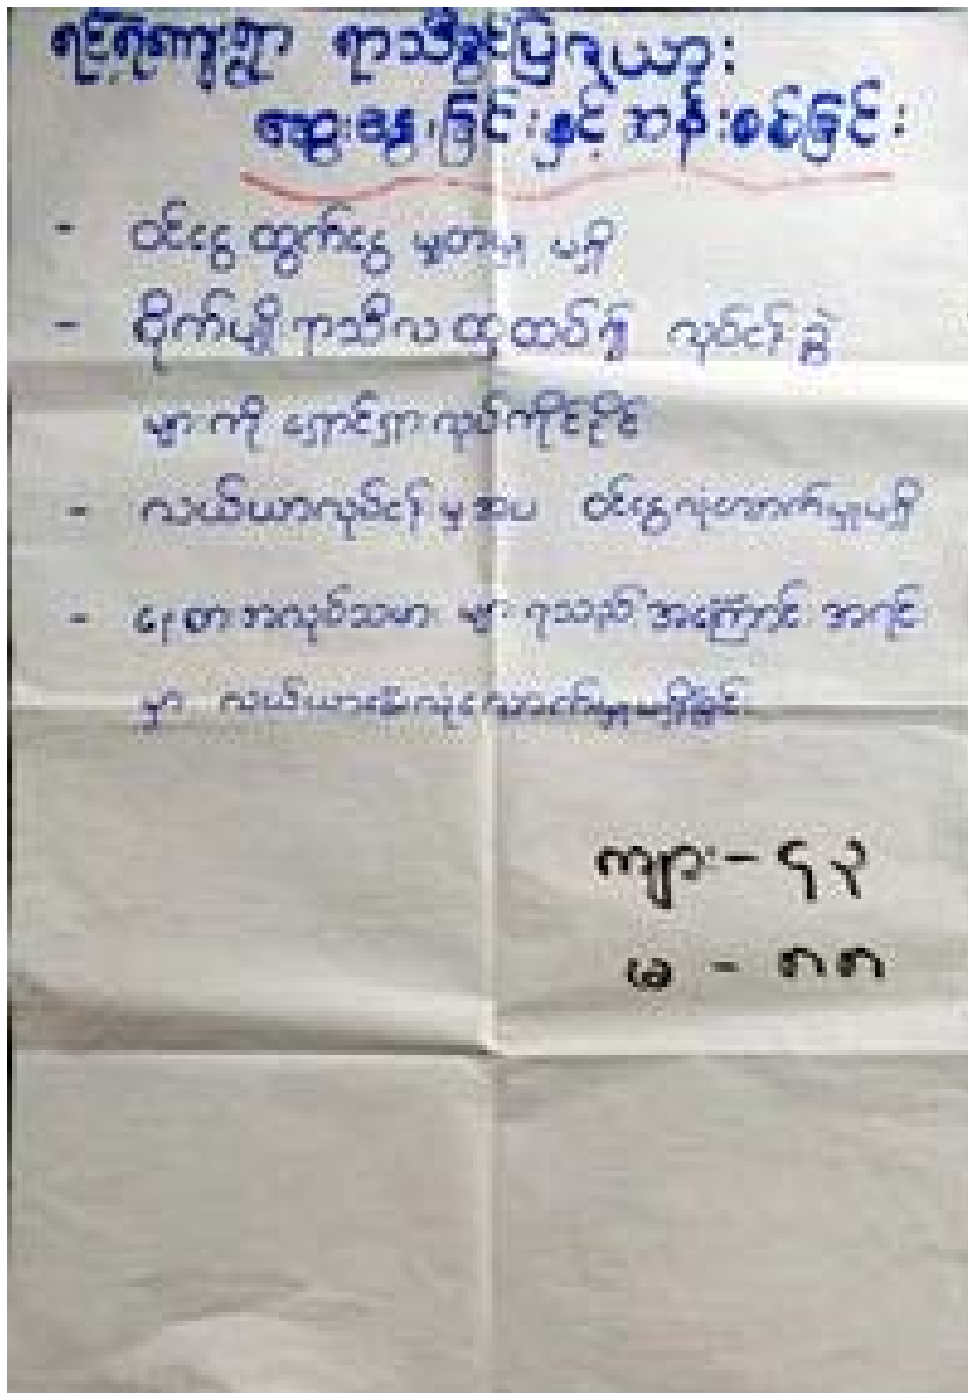 ရာသီခွင်ပြဇယား
ဆွေးနွေးခြင်းနှင့် ဆန်းစစ်ခြင်း
- ဝင်ငွေ ထွက်ငွေ မျှတမှု မရှိ
- စိုက်ပျိုးရာသီလ ထူထပ်၍ လုပ်ငန်းခွဲ
များကို ရှောင်ရှားလုပ်ကိုင်နိုင်
- လယ်ယာလုပ်ငန်းမှအပ ဝင်ငွေလုံလောက်မှုမရှိ
- နေ့စားအလုပ်သမား များ ရသည့်အကြောင်း အရင်း
မှာ လယ်ယာမြေလုံလောက်မှုမရှိခြင်း
ကျား - ၄၃
မ - ၈၈